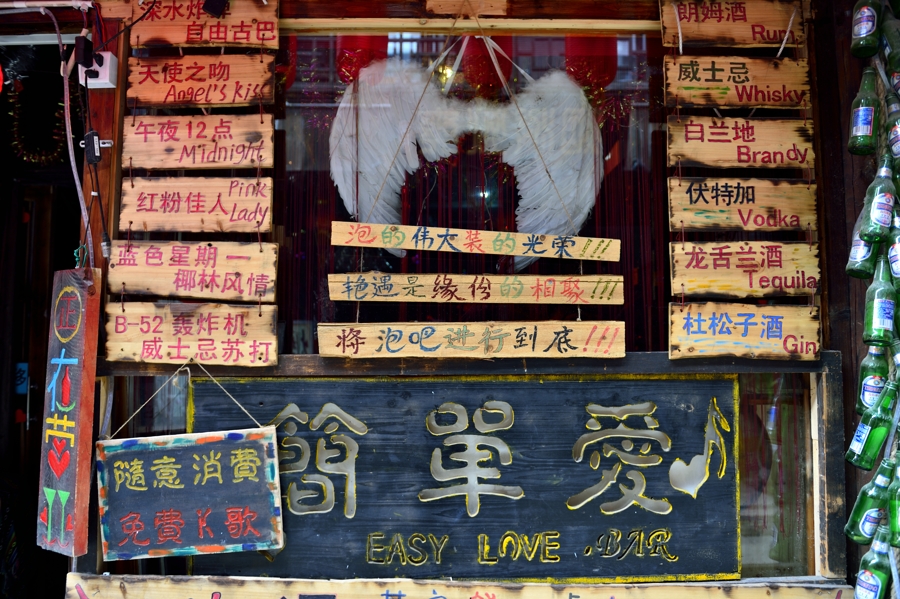 深水炸弹
自由古巴
天使之吻
Angel's Kiss
午夜12点
Midnight
红粉佳人 Pink Lady
蓝色星期一
椰林风情
B-52 轰炸机
威士忌苏打
泡的伟大装的光荣!!!
艳遇是缘份的相聚!!!
将泡吧进行到底!!!
朗姆酒
Rum
威士忌
Whisky
白兰地
Brandy
伏特加
Vodka
龙舌兰酒
Tequila
杜松子酒
Gin
正在營
隨意消費
免費K歌
簡單愛
EASY LOVE .BAR